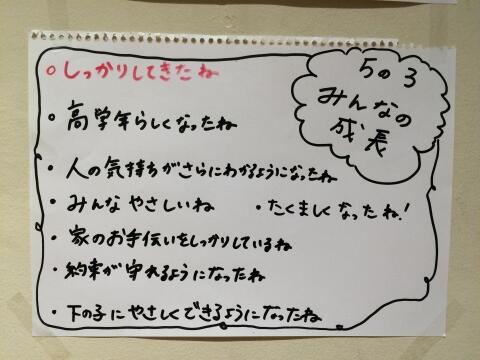 ○しっかりしてきたね
5の3
みんなの
成長
○高学年らしくなったね
・人の気持ちがさらにわかるようになったね
・みんなやさしいね ・たくましくなったね!
・家のお手伝いをしっかりしているね
・約束が守れるようになったね
・下の子にやさしくできるようになったね